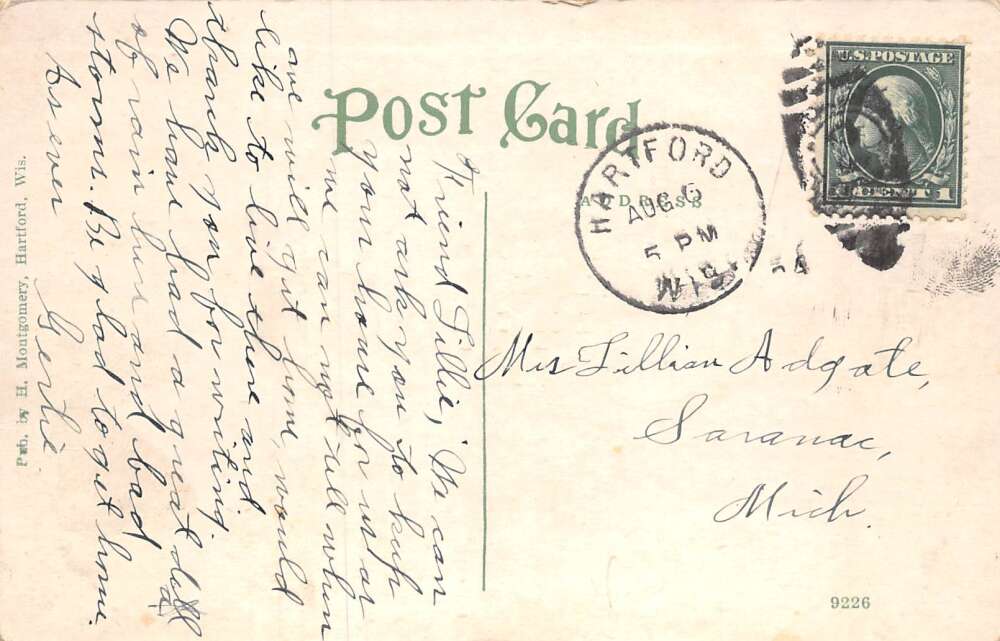 POST CARD
ADDRESS
HARTFORD
AUG 6
5 PM
WIS.
U.S. POSTAGE
1 CENT 1
Friend Lillie, We can
not ask you to keep
your house for us as
we can not tell when
we will get home, would
like to live there and
thank you for writing.
We have had a great deal
of rain here and bad
storms. Be glad to get home.
As ever
Gertie.
Mrs Lillian Adgate,
Saranac,
Mich.
Pub. by H. Montgomery, Hartford, Wis.
9226